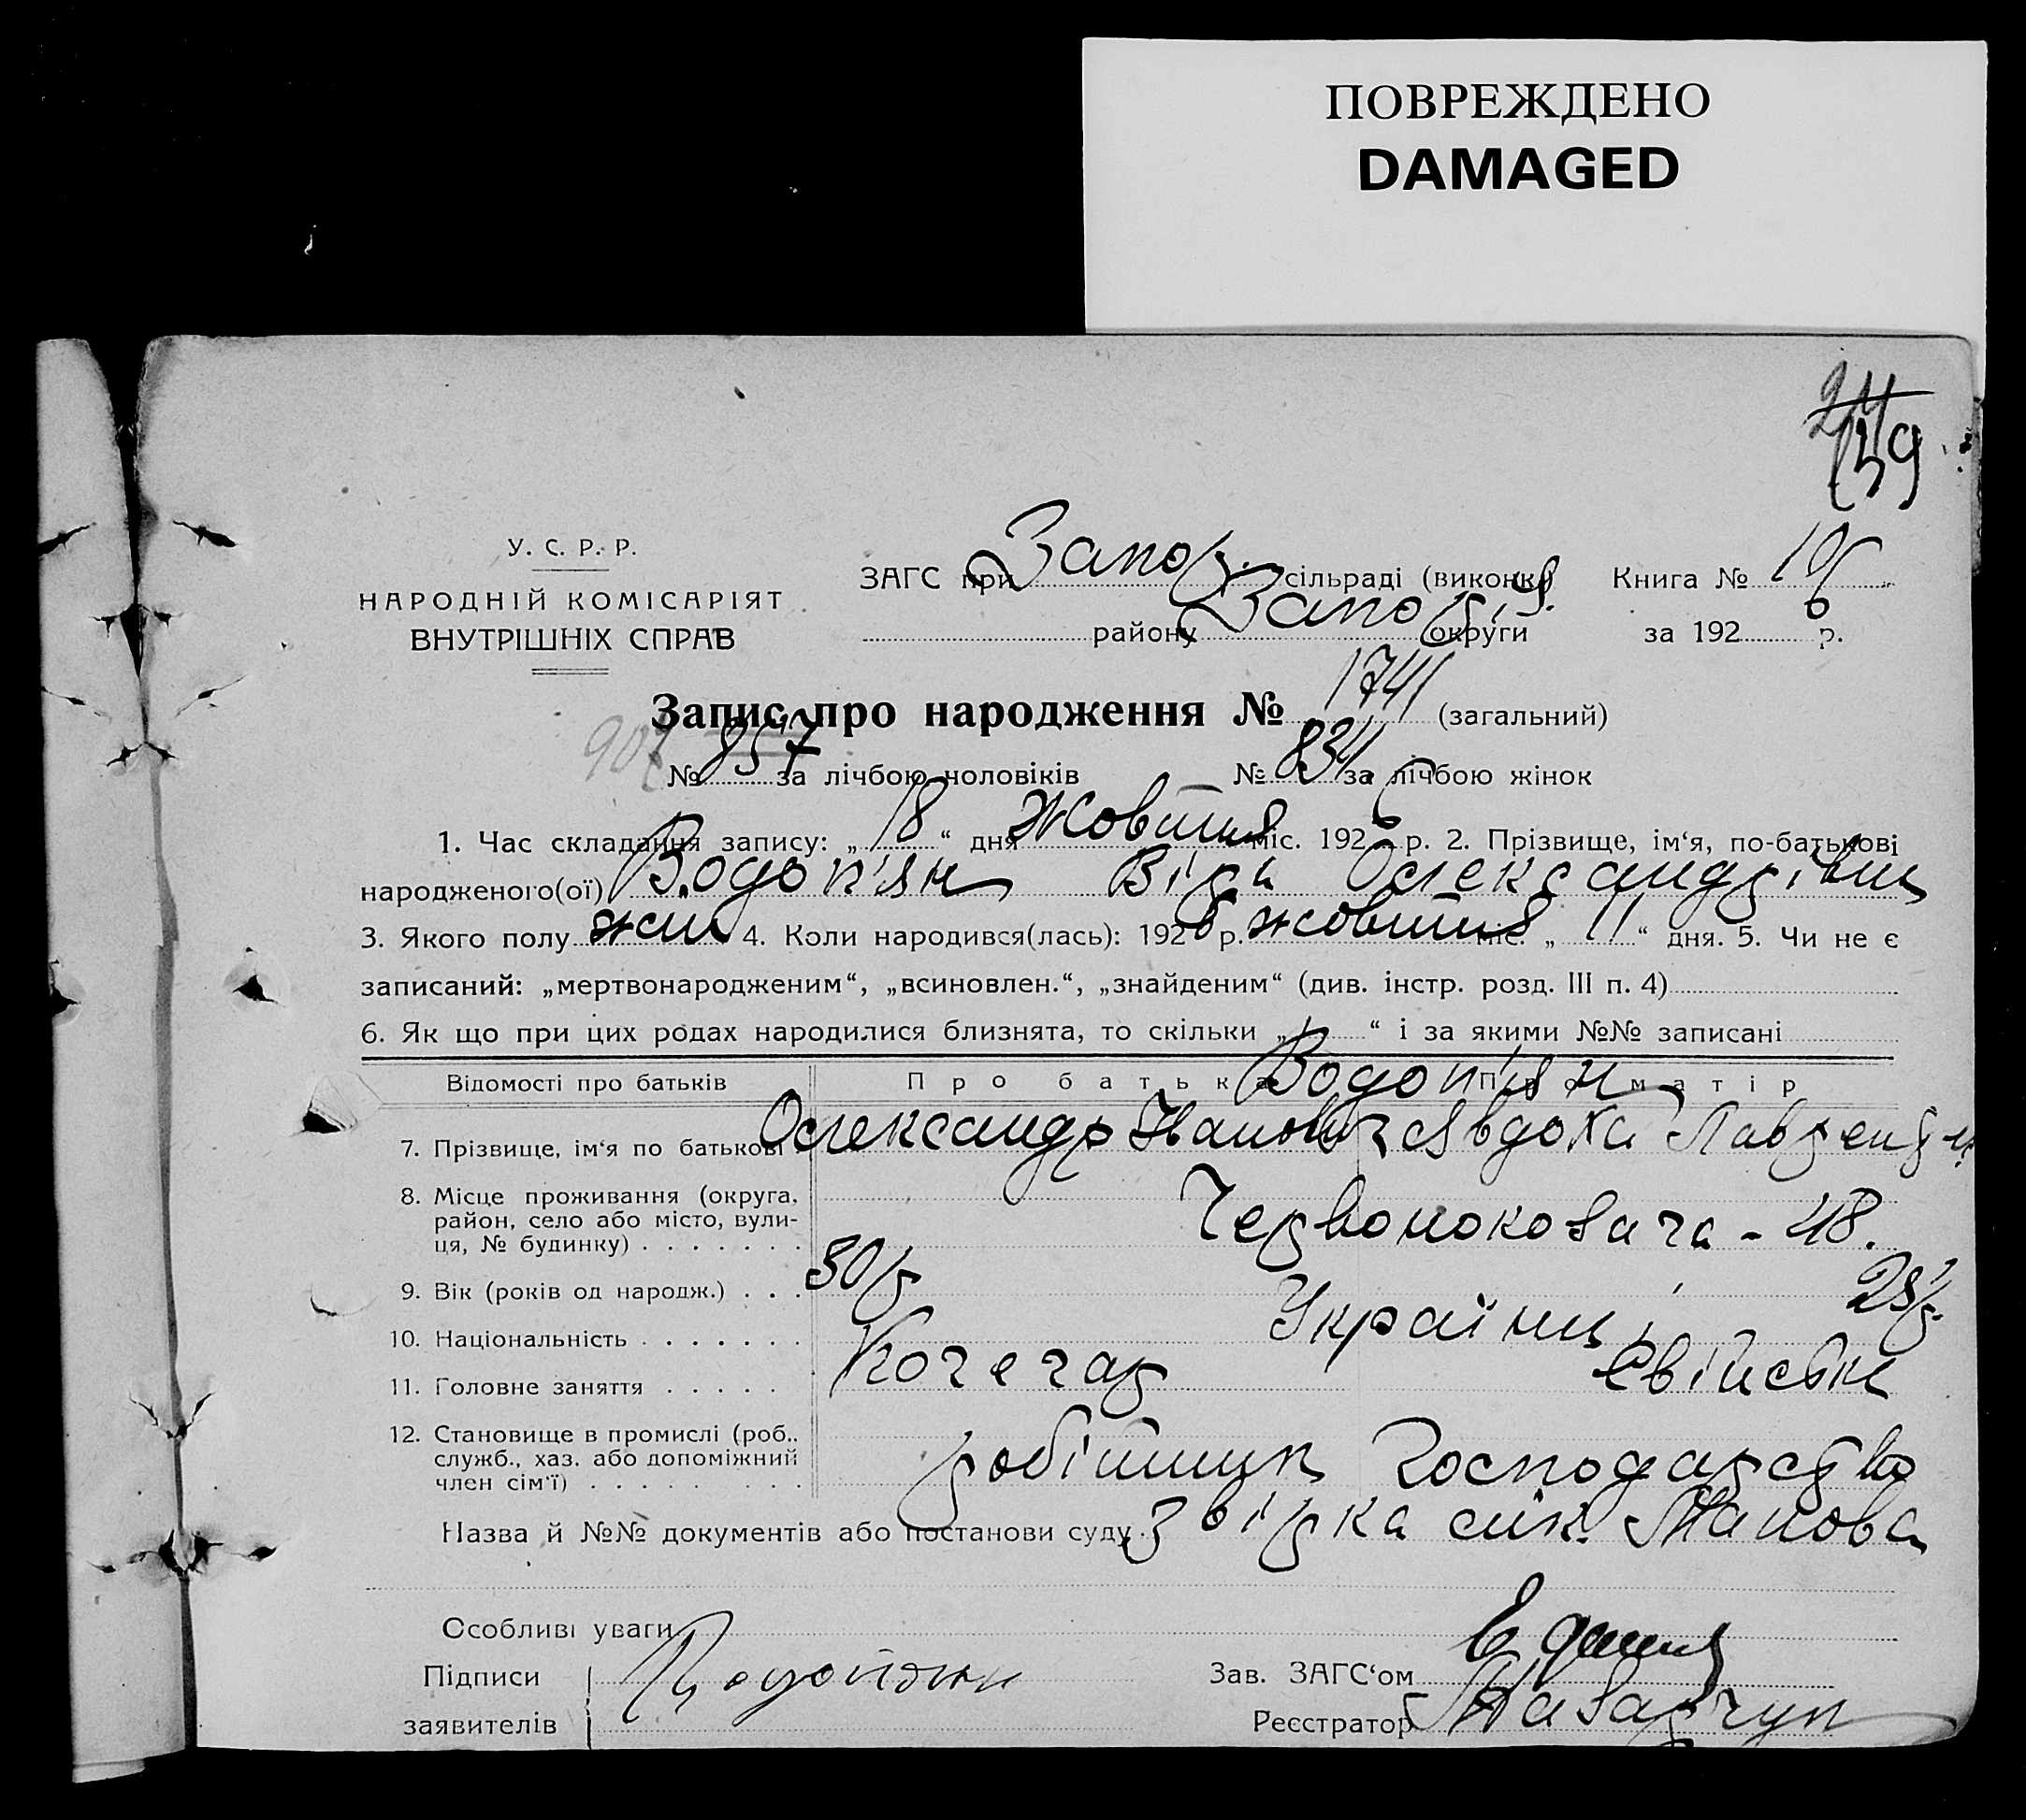 ПОВРЕЖДЕНО
DAMAGED
159
У. С. Р. Р.
НАРОДНІЙ КОМІСАРІЯТ
ВНУТРІШНІХ СПРАВ
ЗАГС при Запор. сільраді (виконк)
Книга № 19
району Запоріз. округи
за 192 6 р.
Запис про народження № 1741 (загальний)
907
№ 857 за лічбою чоловіків № 834 за лічбою жінок
1. Час складання запису: „ 18 “ дня Жовтня міс. 192 6 р. 2. Прізвище, ім‘я, по-батькові
народженого(ої) Водоп'ян Віра Олександрівна
3. Якого полу жін 4. Коли народився(лась): 192 6 р. жовтня міс. „ 11 “ дня. 5. Чи не є
записаний: „мертвонародженим“, „всиновлен.“, „знайденим“ (див. інстр. розд. III п. 4)
6. Як що при цих родах народилися близнята, то скільки „ “ і за якими №№ записані
Відомості про батьків Про батька Про матір
Водоп'ян
7. Прізвище, ім‘я по батькові Олександр Іванович Явдоха Лаврент
8. Місце проживання (округа,
район, село або місто, вули-
ця, № будинку) Червонокозача - 48.
9. Вік (років од народж.) 30 р 25 р.
10. Національність Українці
11. Головне заняття Кочегар Свійське
12. Становище в промислі (роб.,
служб., хаз. або допоміжний
член сім‘ї) робітник господарство
Назва й №№ документів або постанови суду звірка
Особливі уваги
Підписи
заявителів
Водопян
Зав. ЗАГС‘ом
Реєстратор